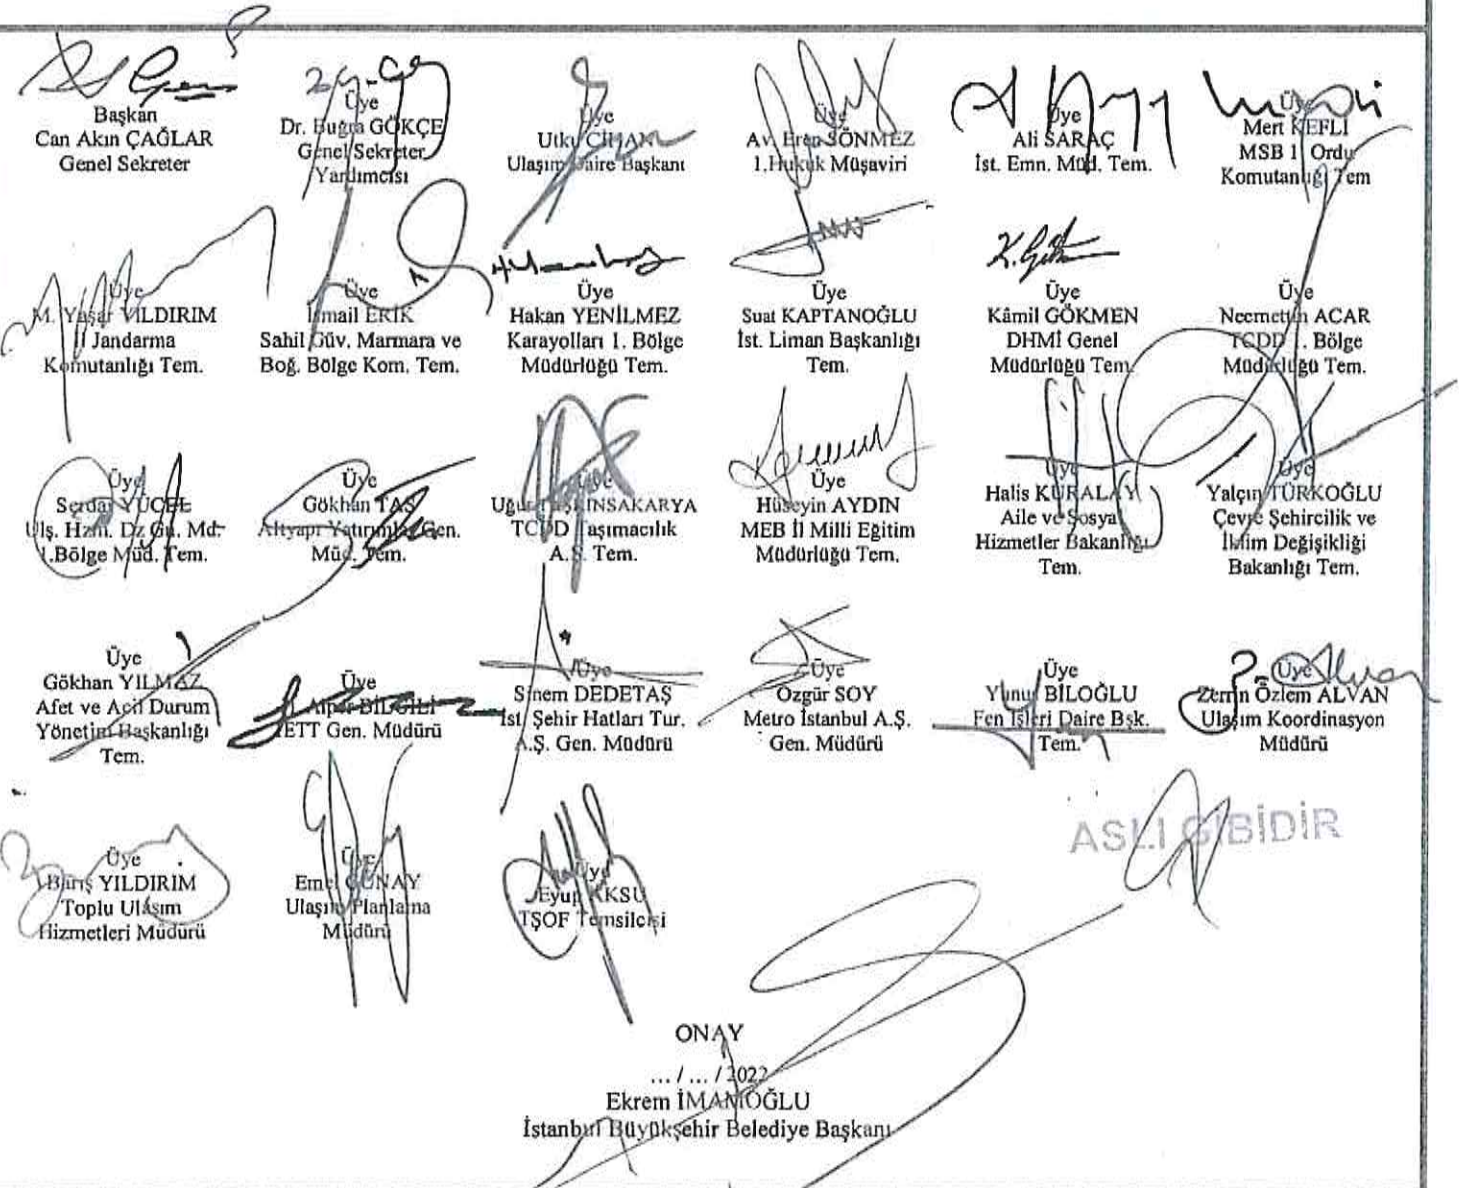 Başkan
Can Akın ÇAĞLAR
Genel Sekreter
Üye
Dr. Buğra GÖKÇE
Genel Sekreter
Yardımcısı
Üye
Utku CİHAN
Ulaşım Daire Başkanı
Üye
Av. Eren SÖNMEZ
1.Hukuk Müşaviri
Üye
Ali SARAÇ
İst. Emn. Müd. Tem.
Üye
Mert KEFLİ
MSB 1. Ordu
Komutanlığı Tem
Üye
M. Yaşar YILDIRIM
İl Jandarma
Komutanlığı Tem.
Üye
İsmail ERİK
Sahil Güv. Marmara ve
Boğ. Bölge Kom. Tem.
Üye
Hakan YENİLMEZ
Karayolları 1. Bölge
Müdürlüğü Tem.
Üye
Suat KAPTANOĞLU
İst. Liman Başkanlığı
Tem.
Üye
Kâmil GÖKMEN
DHMİ Genel
Müdürlüğü Tem.
Üye
Necmettin ACAR
TCDD 1. Bölge
Müdürlüğü Tem.
Üye
Serdar YÜCEL
Ulş. Hzm. Dz Gn. Md.
1.Bölge Müd. Tem.
Üye
Gökhan TAŞ
Altyapı Yatırımları Gen.
Müd. Tem.
Üye
Uğur TAŞKINSAKARYA
TCDD Taşımacılık
A.Ş. Tem.
Üye
Hüseyin AYDIN
MEB İl Milli Eğitim
Müdürlüğü Tem.
Üye
Halis KURALAY
Aile ve Sosyal
Hizmetler Bakanlığı
Tem.
Üye
Yalçın TÜRKOĞLU
Çevre Şehircilik ve
İklim Değişikliği
Bakanlığı Tem.
Üye
Gökhan YILMAZ
Afet ve Acil Durum
Yönetim Başkanlığı
Tem.
Üye
Alper BİLGİLİ
İETT Gen. Müdürü
Üye
Sinem DEDETAŞ
İst. Şehir Hatları Tur.
A.Ş. Gen. Müdürü
Üye
Özgür SOY
Metro İstanbul A.Ş.
Gen. Müdürü
Üye
Yunus BİLOĞLU
Fen İşleri Daire Bşk.
Tem.
Üye
Zerrin Özlem ALVAN
Ulaşım Koordinasyon
Müdürü
Üye
Barış YILDIRIM
Toplu Ulaşım
Hizmetleri Müdürü
Üye
Emel GÜNAY
Ulaşım Planlama
Müdürü
Üye
Eyup AKSU
TŞOF Temsilcisi
ASLI GİBİDİR
ONAY
... / ... / 2022
Ekrem İMAMOĞLU
İstanbul Büyükşehir Belediye Başkanı